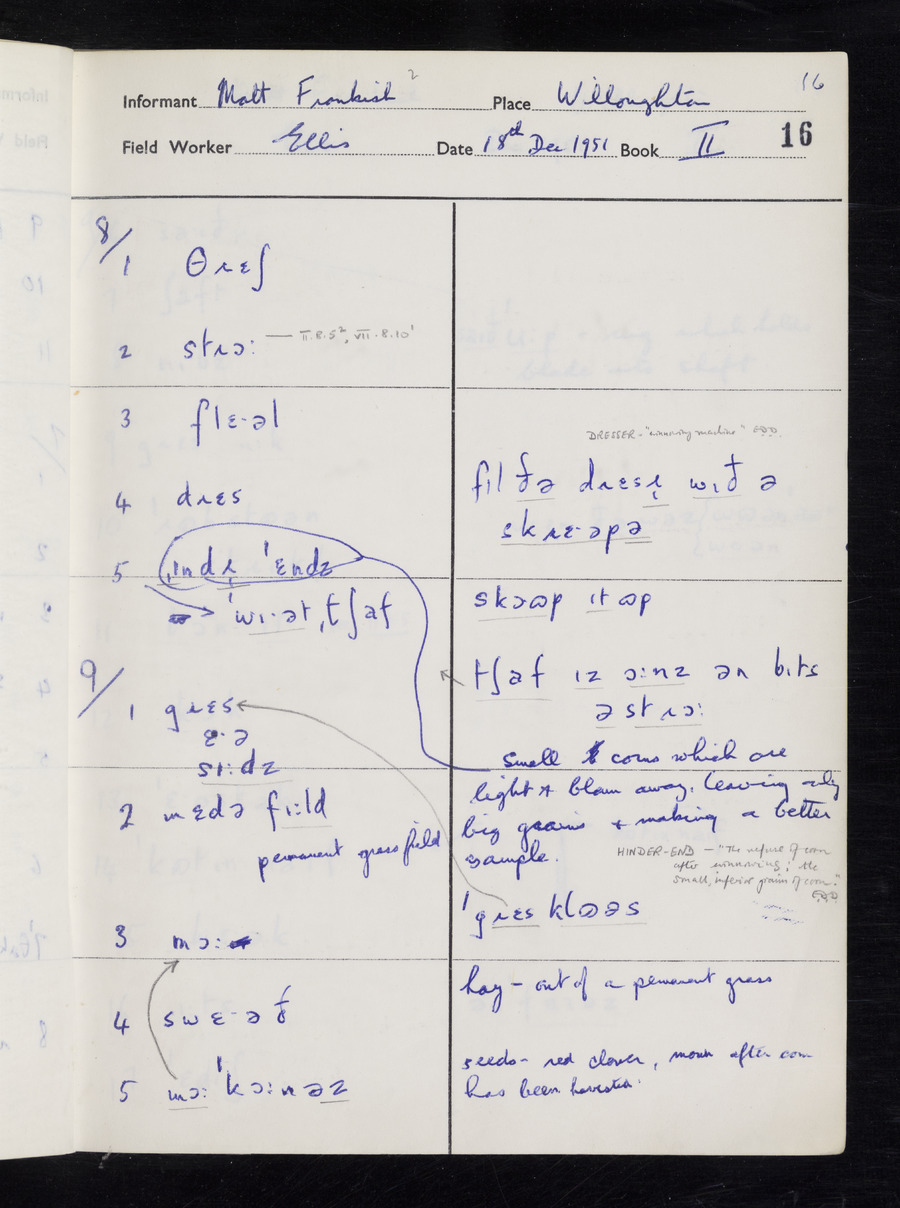 16
Informant Matt Frankish 2 Place Willoughton
Field Worker Ellis Date 18th Dec 1951 Book II 16
8/
1 θɹɛʃ
2 stɹɔ: — II.8.5², VII.8.10¹
3 flɛ·əl
DRESSER - "winnowing machine" EDD.
4 dɹɛs
fɪl ðə dɹɛsɹ̩ wɪð ə
skɹɛ·əpə
5 ˌɪndɹ̩ ˈɛndz
ˈwɪ·ət ˌtʃaf
skɔʊp ɪt ʊp
tʃaf ɪz ɔ:nz ən bɪts
ə stɹɔ:
9/
1 gɹɛs
ɛ·ə
sɪ:dz
small corns which are
light & blown away, leaving only
big grains & making a better
sample.
HINDER-END - "The refuse of corn
after winnowing; the
small, inferior grains of corn."
EDD
2 mɛdə fɪ:ld
permanent grass field
ˈgɹɛs klʊəs
3 mɔ:
hay - out of a permanent grass
4 swɛ·əð
5 mɔ: ˈkɔ:nəz
seeds - red clover, mown after corn
has been harvested.